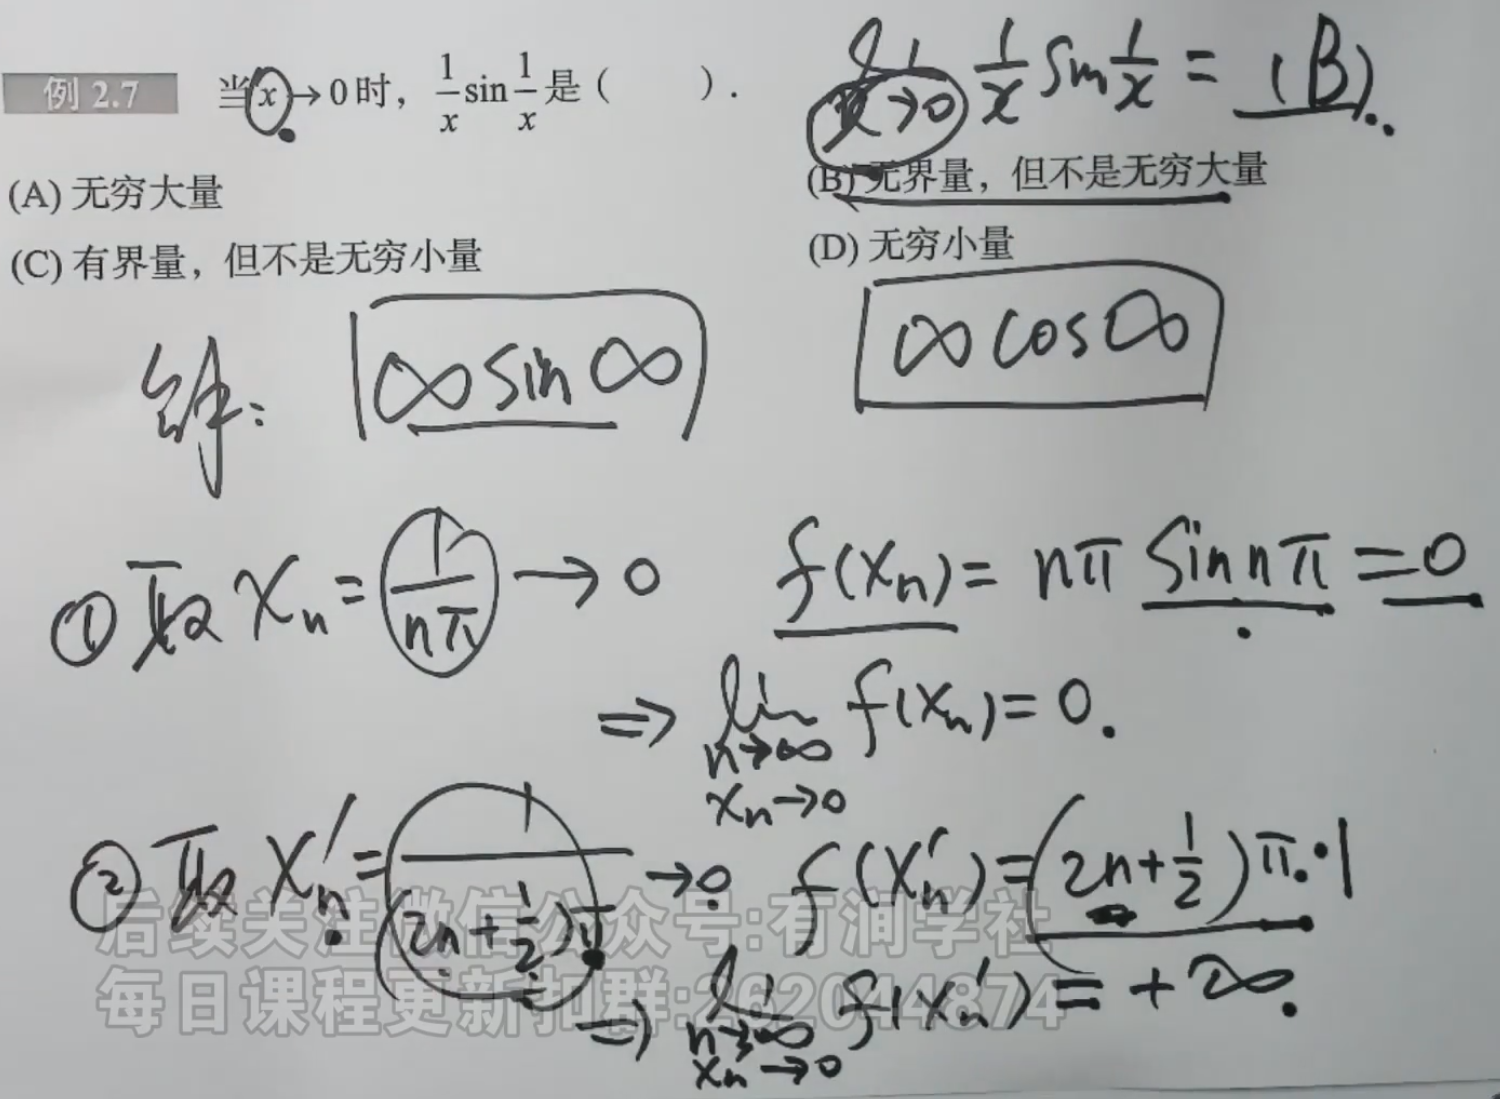 例 2.7 当 x → 0 时，1/x sin 1/x 是（ ）.
lim x→0 1/x sin 1/x = (B).
(A) 无穷大量
(B) 无界量，但不是无穷大量
(C) 有界量，但不是无穷小量
(D) 无穷小量
解: ∞ sin ∞
∞ cos ∞
① 取 xn = 1/nπ → 0 f(xn) = nπ sin nπ = 0
⇒ lim n→∞ xn→0 f(xn) = 0.
② 取 xn′ = 1/(2n+1/2)π → 0 f(xn′) = (2n+1/2)π·1
后续关注微信公众号:有润学社
⇒ lim n→∞ xn→0 f(xn′) = +∞.
每日课程更新扣群:262044874